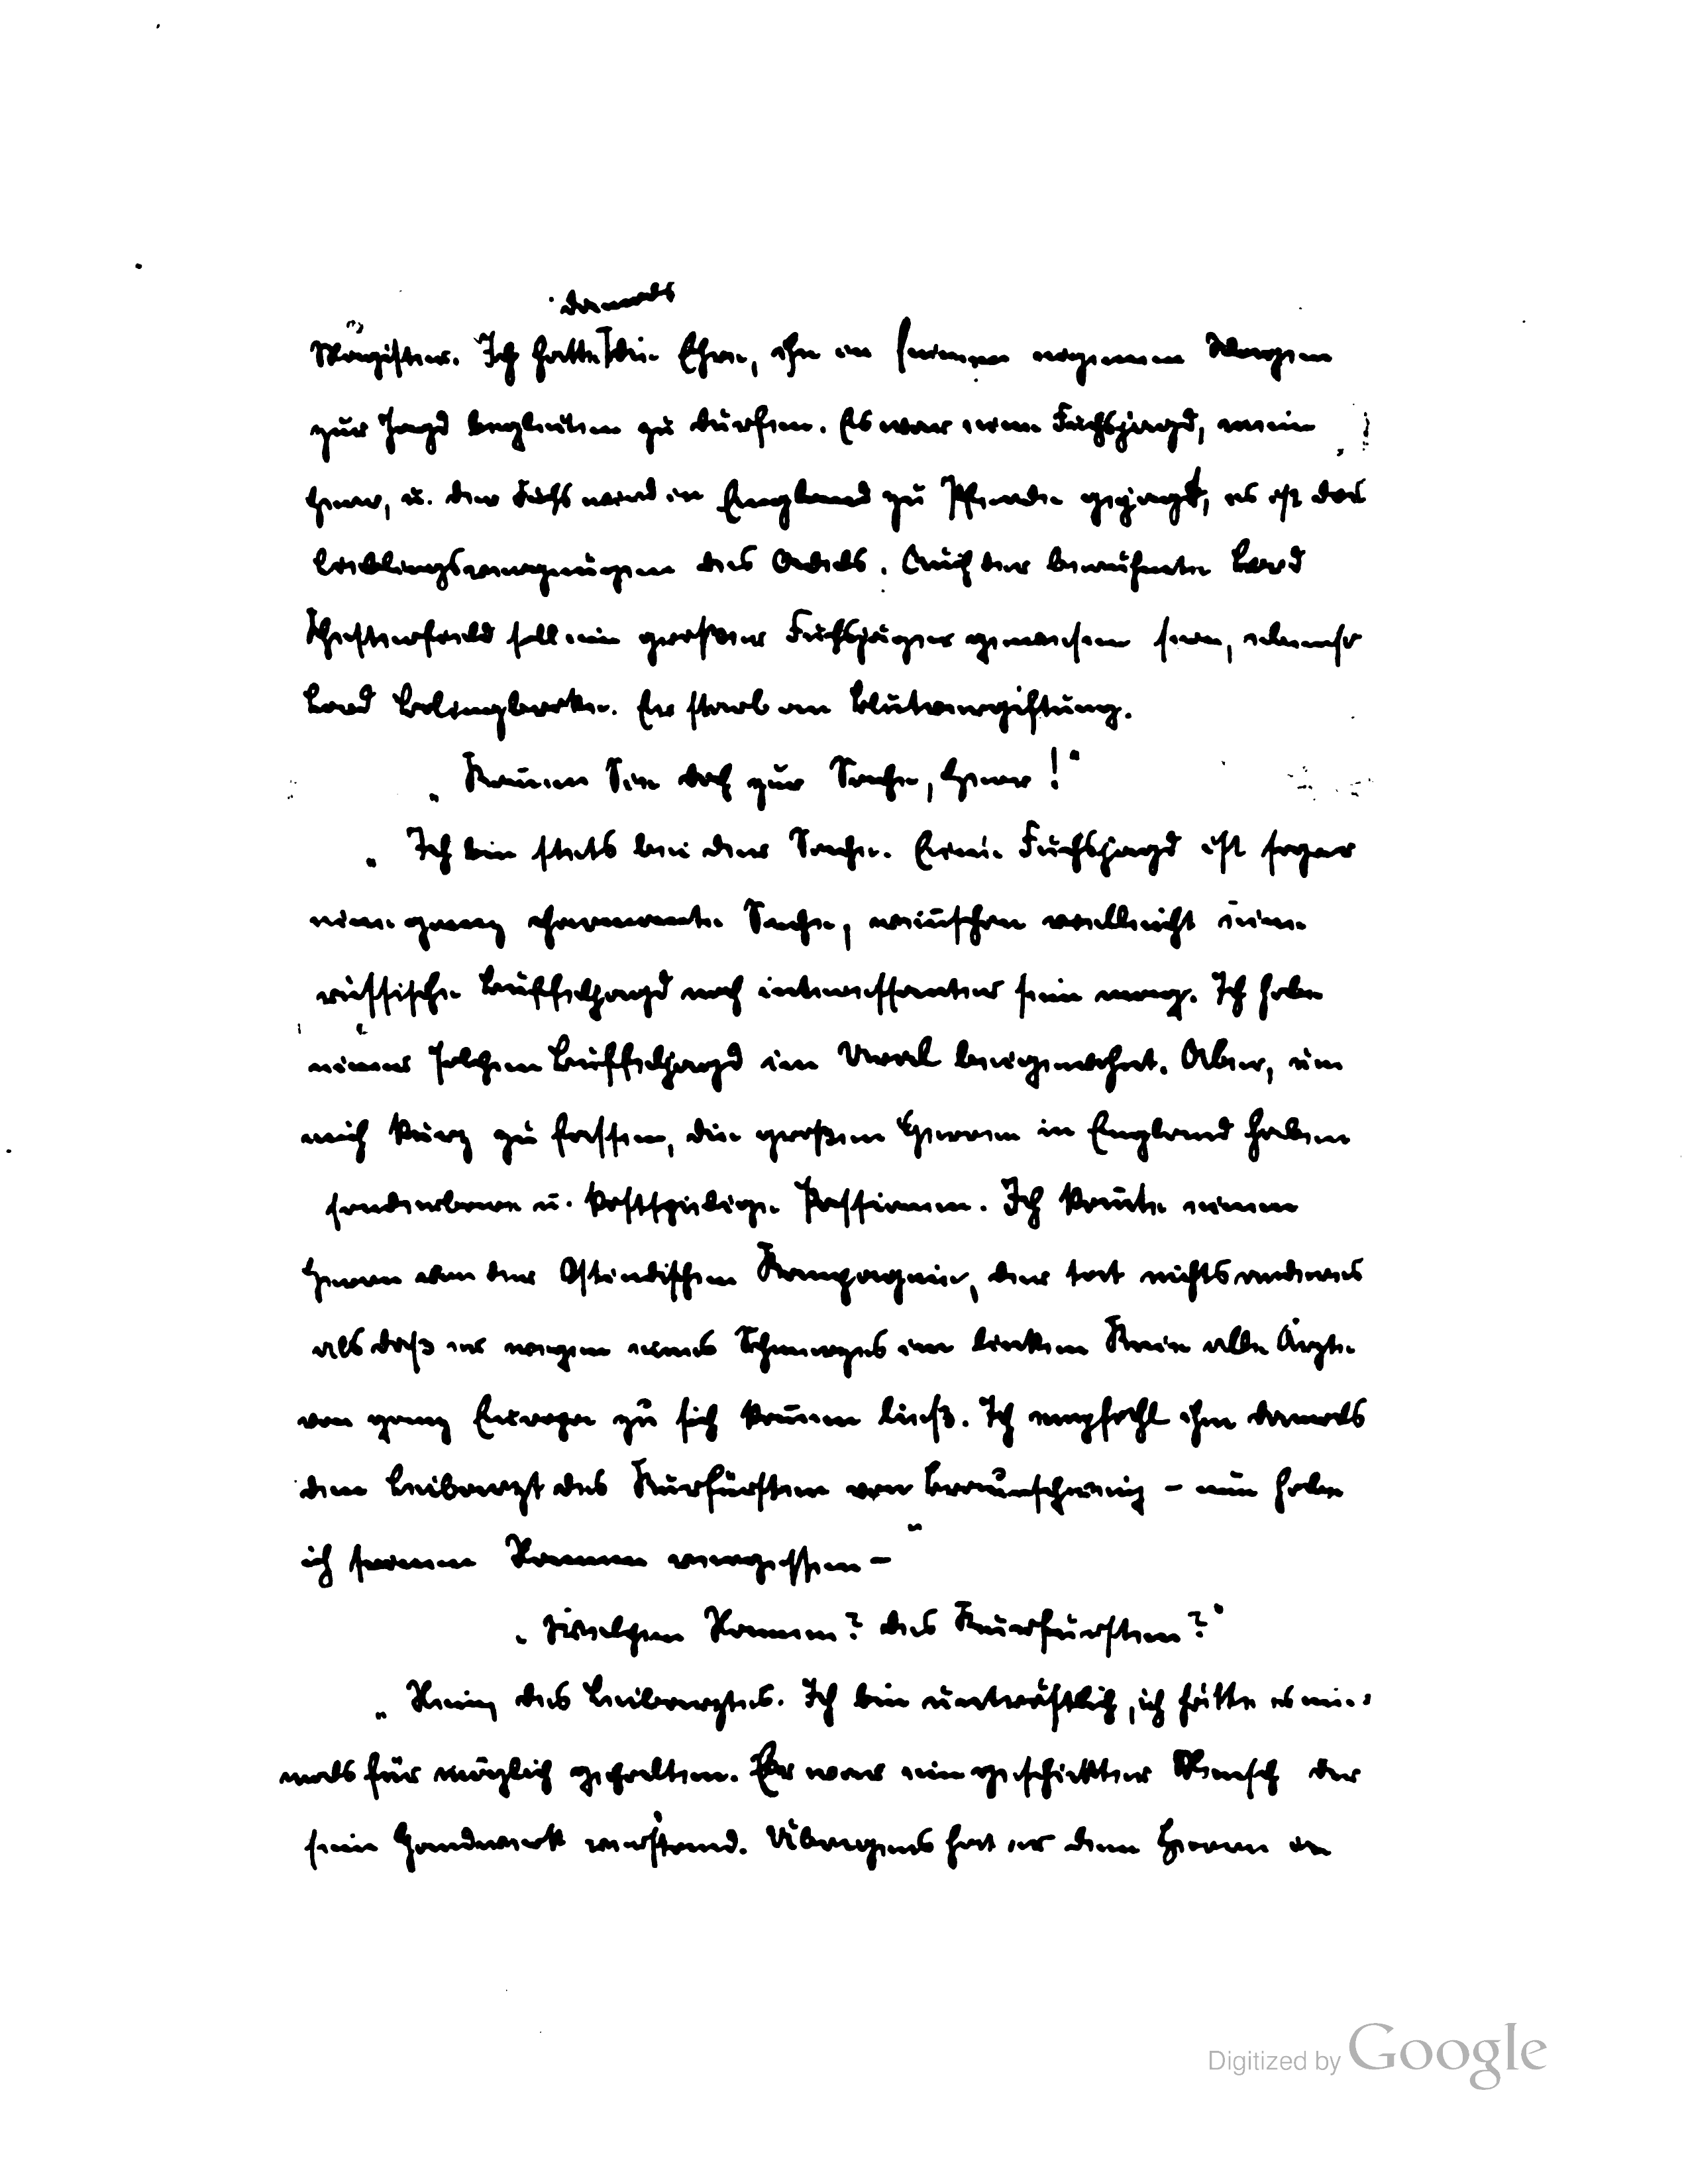 damals
Magister. Ich hatte die Ehre, ihn in seinem eigenen Wagen
zur Jagd begleiten zu dürfen. Es war eine Fuchsjagd, mein
Herr, u. der Fuchs wird in England zu Pferde gejagt, es ist das
Lieblingsvergnügen des Adels. Auch der berühmte Lord
Chesterfield soll ein großer Fuchsjäger gewesen sein, ebenso
Lord Bolingbroke. Er starb an Blutvergiftung.
„Kom̄en Sie doch zur Sache, Herr!“
„Ich bin stets bei der Sache. Eine Fuchsjagd ist sogar
eine ganz charmante Sache, wiewohl vielleicht eine
russische Büffeljagd noch interessanter sein mag. Ich habe
einer solchen Büffeljagd im Ural beigewohnt. Aber, um
mich kurz zu fassen, die großen Herren in England haben
sonderbare u. kostspielige Passionen. Ich kan̄te einen
Herrn von der Ostindischen Kompagnie, der tat nichts anderes
als daß er wegen eines Schmerzes im linken Knie alle Ärzte
von ganz Europa zu sich kom̄en ließ. Ich empfahl ihm damals
den Leibarzt des Kurfürsten von Braunschweig – nun habe
ich seinen Namen vergessen –“
„Welchen Namen? des Kurfürsten?“
„Nein, des Leibarztes. Ich bin untröstlich, ich hätte es nie-
mals für möglich gehalten. Er war ein geschickter Mensch der
sein Handwerk verstand. Übrigens hat er dem Herrn in